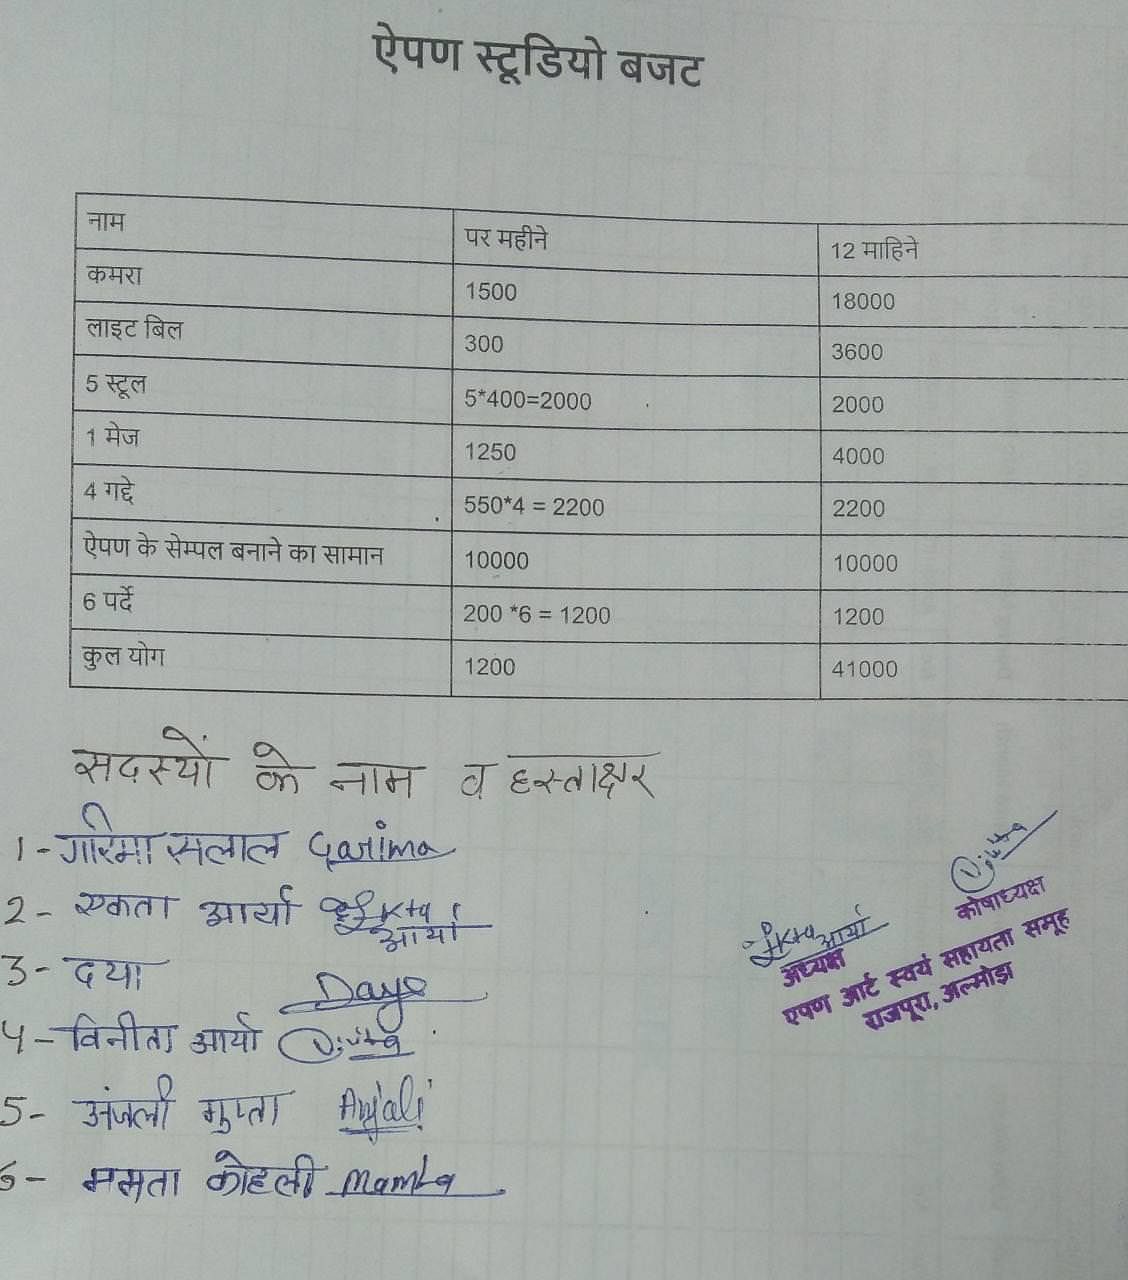 ऐपण स्टूडियो बजट
नाम पर महीने 12 माहिने
कमरा 1500 18000
लाइट बिल 300 3600
5 स्टूल 5*400=2000 2000
1 मेज 1250 4000
4 गद्दे 550*4 = 2200 2200
ऐपण के सेम्पल बनाने का सामान 10000 10000
6 पर्दे 200 *6 = 1200 1200
कुल योग 1200 41000
सदस्यों के नाम व हस्ताक्षर
1- गरिमा सलाल Garima
2- एकता आर्या Ekta आर्या
3- दया Daya
4- विनीता आर्या Vinita
5- अंजली गुप्ता Anjali
6- ममता कोहली Mamta
Vinita
कोषाध्यक्ष
Ekta आर्या
अध्यक्ष
एपण आर्ट स्वयं सहायता समूह
राजपूरा, अल्मोड़ा